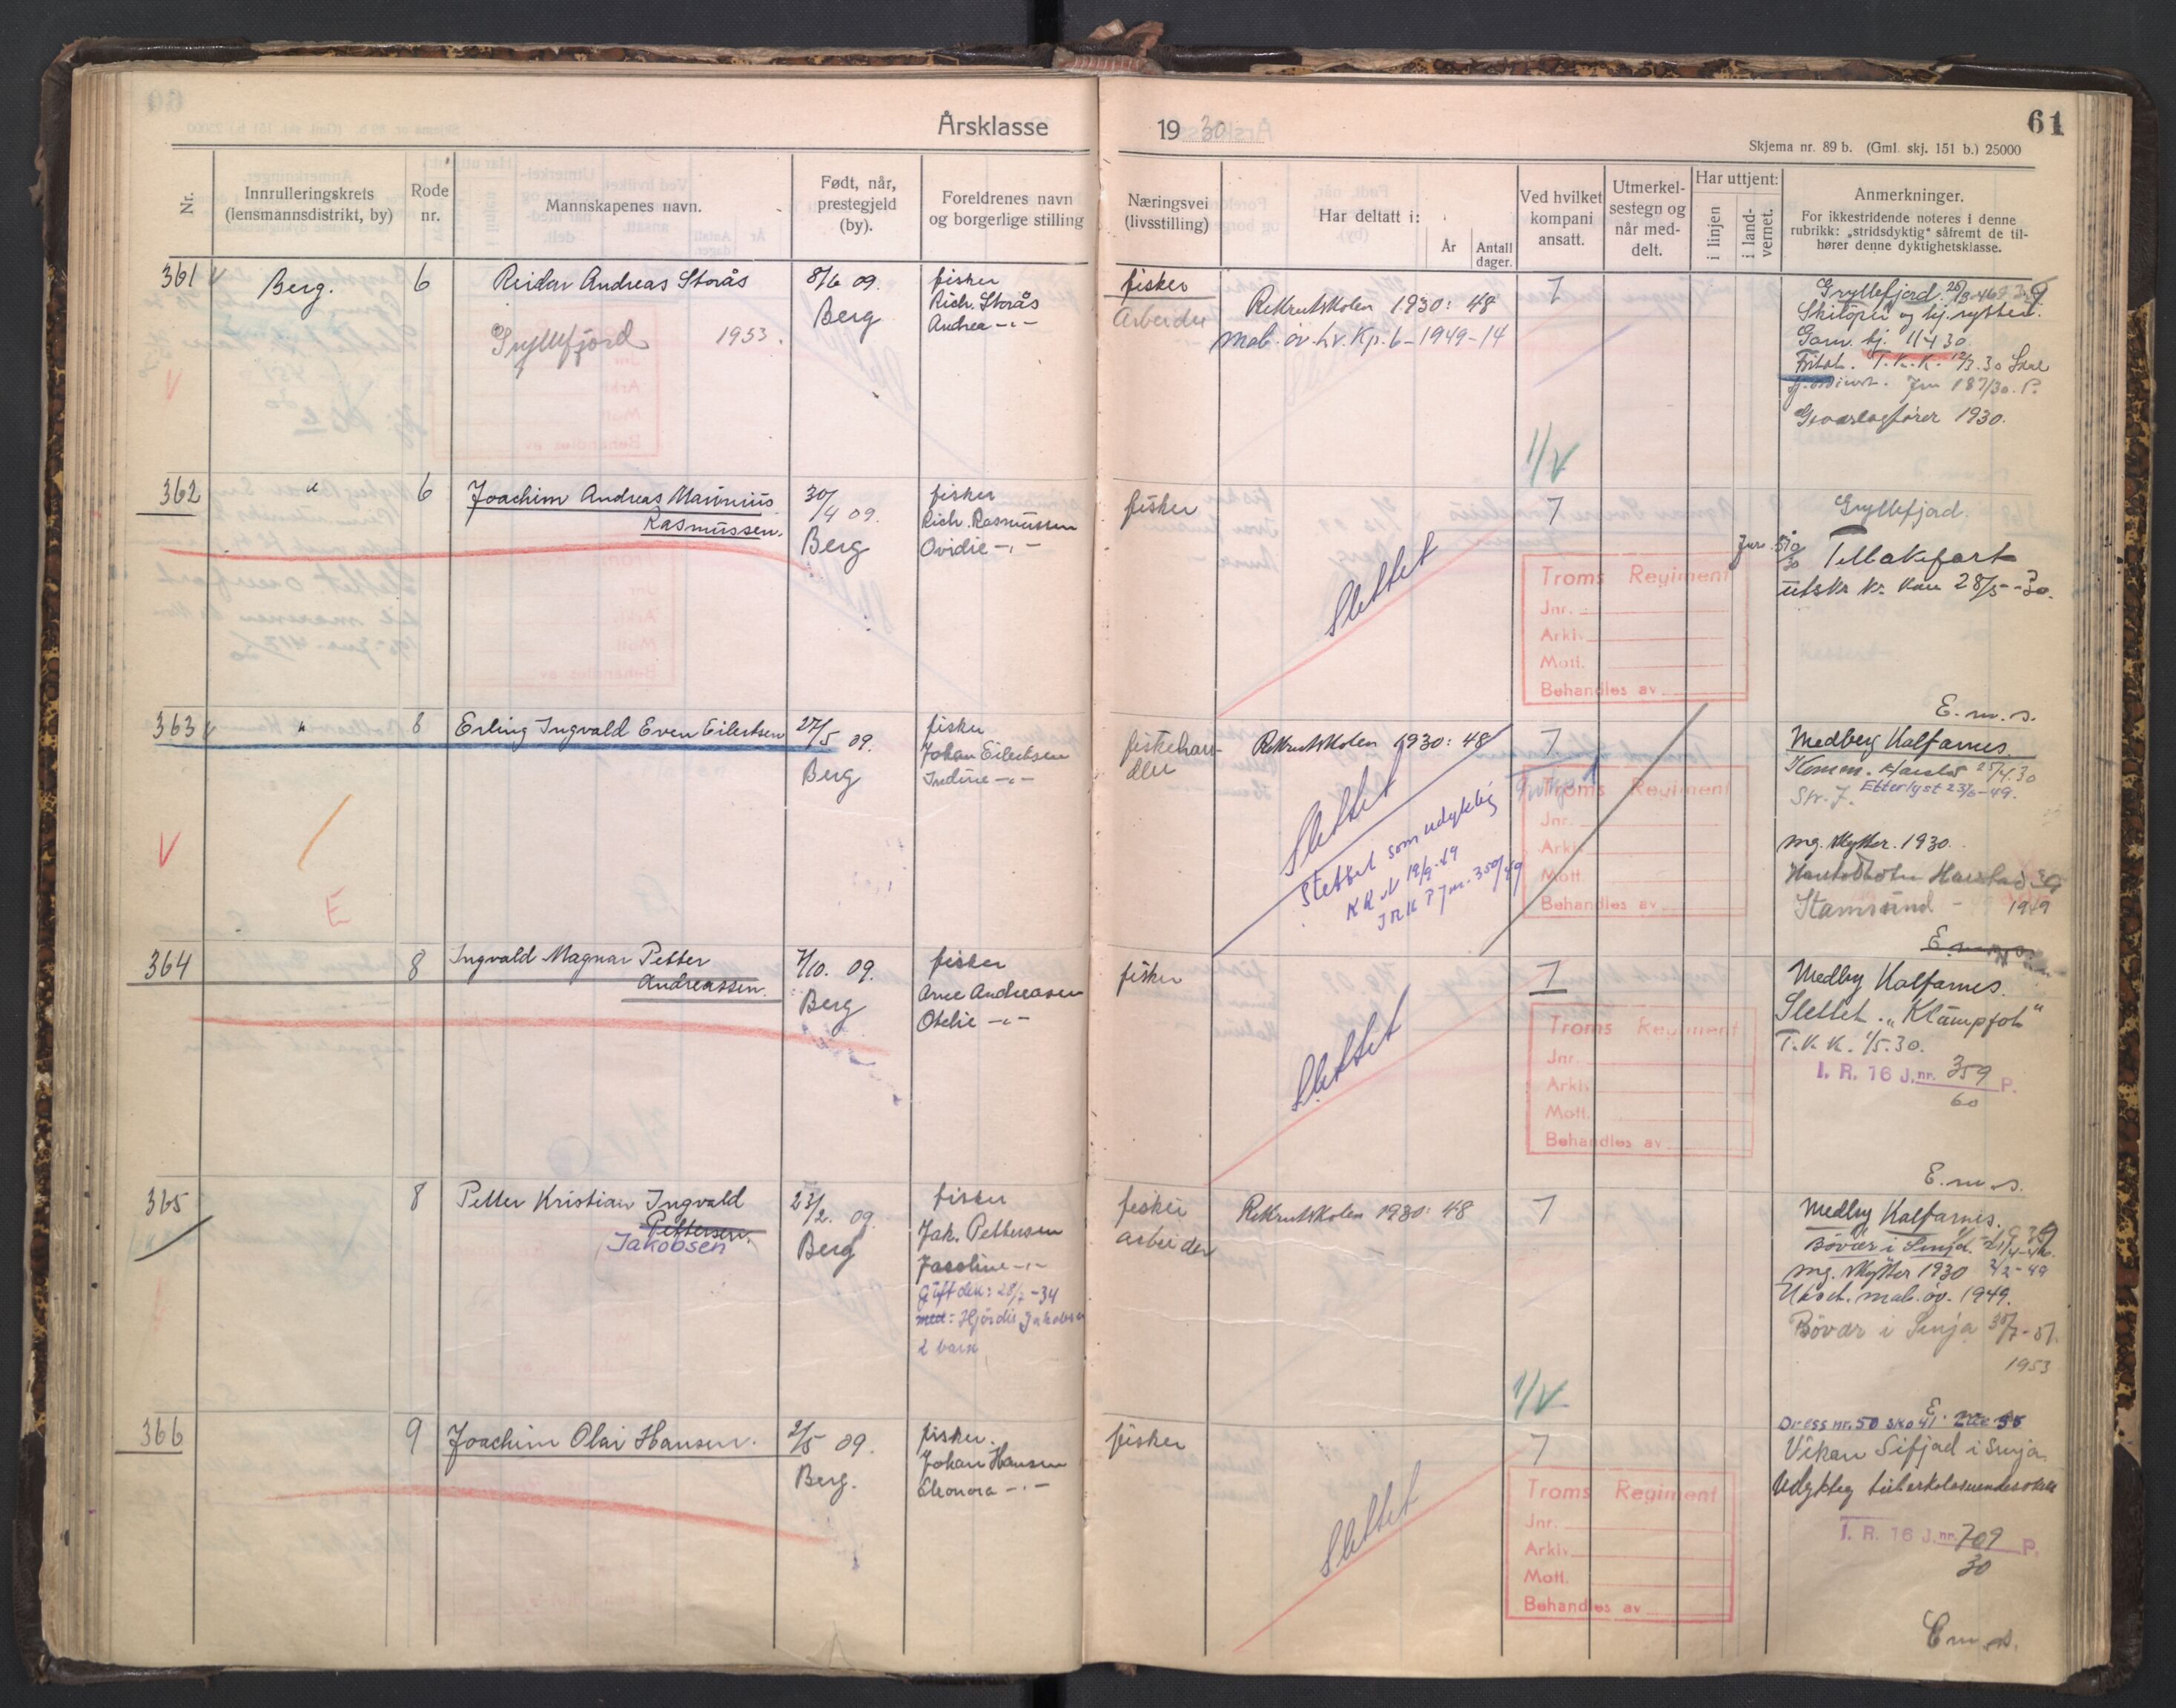 Årsklasse
1930
61
Skjema nr. 89 b. (Gml. skj. 151 b.) 25000
Nr.
Innrulleringskrets
(lensmannsdistrikt, by)
Rode
nr.
Mannskapenes navn.
Født, når,
prestegjeld
(by).
Foreldrenes navn
og borgerlige stilling
Næringsvei
(livsstilling)
Har deltatt i:
År
Antall
dager.
Ved hvilket
kompani
ansatt.
Utmerkel-
sestegn og
når med-
delt.
Har uttjent:
i linjen
i land-
vernet.
Anmerkninger.
For ikkestridende noteres i denne
rubrikk: „stridsdyktig" såfremt de til-
hører denne dyktighetsklasse.
361 Berg. 6
Reidar Andreas Storås
Gryllefjord 1953.
8/6 09.
Berg
fisker
Rich. Storås
Andrea -"-
fisker
Arbeider
Rekrutskolen 1930: 48
Mob. øv. Lv. Kp. 6 - 1949 - 14
7
1/V
Gryllefjord.
Garn. tj. 11430
T.K.K. 12/3.30
Geværlagfører 1930.
362 " 6
Joachim Andreas Marinius
Rasmussen.
30/4 09.
Berg
fisker
Rich. Rasmussen
Ovidie -"-
fisker
Slettet
7
Troms Regiment
Jnr.
Arkiv
Mott.
Behandles av
Gryllefjord.
Jnr. 510/30
Tilbakeført
utskr. kr. kau 28/5-30.
E.m.s.
363 " 8
Erling Ingvald Even Eilertsen
27/5 09.
Berg
fisker
Johan Eilertsen
Indine -"-
fiskehan-
dler
Rekrutskolen 1930: 48
Slettet
Slettet som udyktig
KRV 19/9-49
7
Troms Regiment
Jnr.
Arkiv
Mott.
Behandles av
Medby Kalfarnes.
Etterlyst 23/6-49.
mg. skytter. 1930.
Stamsund - 1949
E
364 8
Ingvald Magnar Petter
Andreassen.
7/10. 09.
Berg
fisker
Arne Andreasen
Otelie -"-
fisker
Slettet
7
Troms Regiment
Jnr.
Arkiv
Mott.
Behandles av
Medby Kalfarnes.
Slettet. „Klumpfot"
T.K.K. 1/5.30.
I. R. 16 J.nr. 359 P.
60
E.m.s.
365 8
Petter Kristian Ingvald
Pettersen.
Jakobsen
23/2. 09.
Berg
fisker
Jak. Pettersen
Jasoline -"-
Gift den: 28/7-34
med: Hjördis Jakobsen
2 barn
fisker
arbeider
Rekrutskolen 1930: 48
7
1/V
Medby Kalfarnes.
Bövær i Senja
mg. skytter 1930 2/2-49
Uteb. mob. øv. 1949.
Bövær i Senja 30/7-51.
1953
Dress nr. 50 sko 41
366 9
Joachim Olai Hansen.
2/5 09.
Berg.
fisker.
Johan Hansen
Eleonora -"-
fisker
Slettet
7
Troms Regiment
Jnr.
Arkiv
Mott.
Behandles av
Vikan Sifjord i Senja
I. R. 16 J.nr. 709 P.
30
E.m.s.